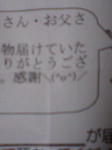 さん・お父さ
物届けていた
りがとうござ
。感謝＼(^o^)／
が届